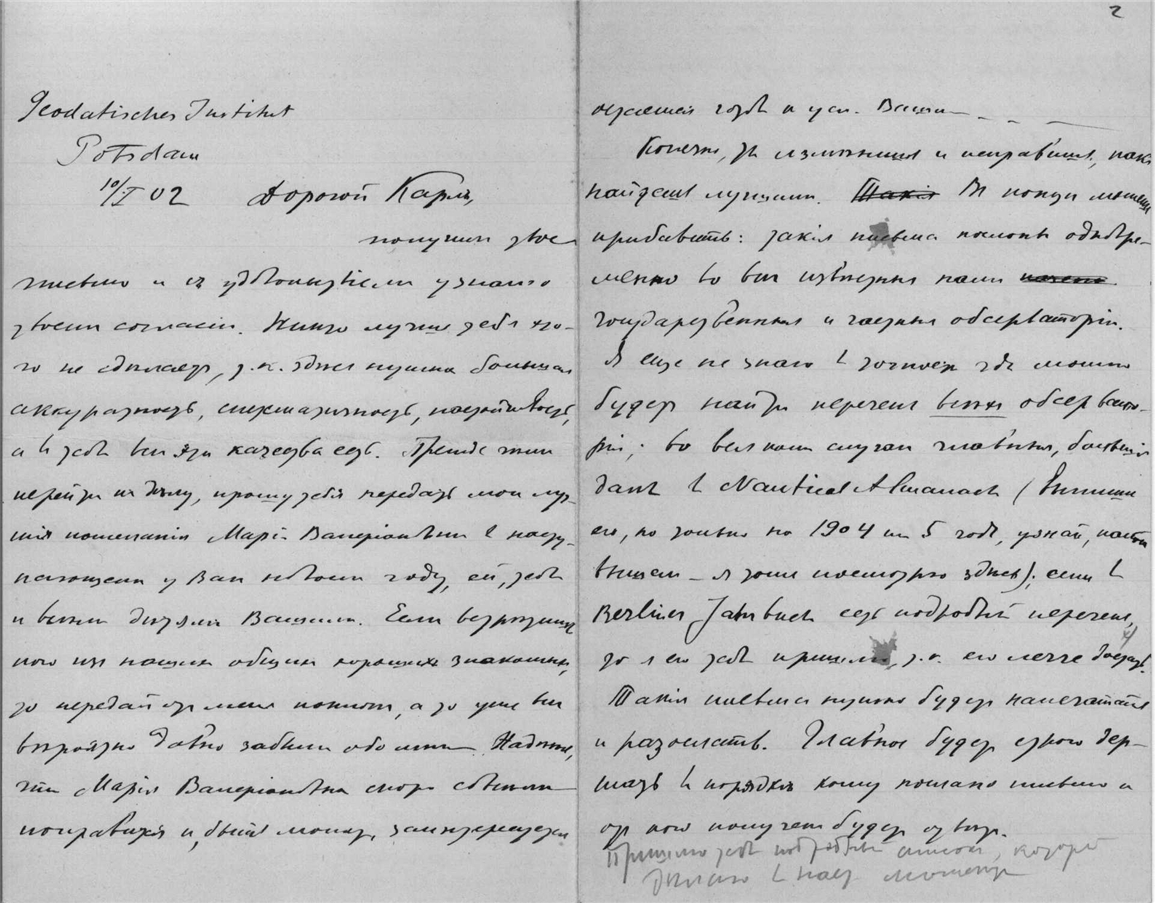 Geodätisches Institut
Potsdam
10/I 02 Дорогой Карлъ,
получилъ твое
письмо и съ удовольствіемъ узналъ о
твоемъ согласіи. Никто лучше тебя это-
го не сдѣлаетъ, т.к. здѣсь нужна большая
аккуратность, настойчивость,
а въ тебѣ всѣ эти качества есть. Прежде чѣмъ
перейти къ дѣлу, прошу тебя передать мои луч-
шія пожеланія Маріи Валеріановнѣ въ насту-
пающемъ у Васъ новомъ году, ей, тебѣ
и всѣмъ Вашимъ. Если встрѣтишь
кого изъ нашихъ общихъ хорошихъ знакомыхъ,
то передай отъ меня поклонъ, а то уже всѣ
вѣроятно давно забыли обо мнѣ. Надѣюсь,
что Марія Валеріановна скоро совсѣмъ
поправится и, быть можетъ, заинтересуется
2
Конечно, ты измѣнишь и исправишь, какъ
найдешь лучшимъ. Такія Въ концѣ можешь
прибавить: такія письма посланы одновре-
менно во всѣ извѣстныя намъ
государственныя и частныя обсерваторіи.
Я еще не знаю въ точности гдѣ можно
будетъ найти перечень всѣхъ обсервато-
рій; во всякомъ случаѣ главныя, большія
даны въ Nautical Almanach (Выпиши
его, но только на 1904 или 5 годъ, узнай,
вышелъ – я тоже посмотрю здѣсь); если въ
Berliner Jahrbuch есть подробный перечень,
то я его тебѣ пришлю, т.к. его легче достать.
Такія письма нужно будетъ напечатать
и разослать. Главное будетъ строго дер-
жать въ порядкѣ кому послано письмо и
отъ кого полученъ будетъ отвѣтъ.
Пришлю тебѣ подробный списокъ, который